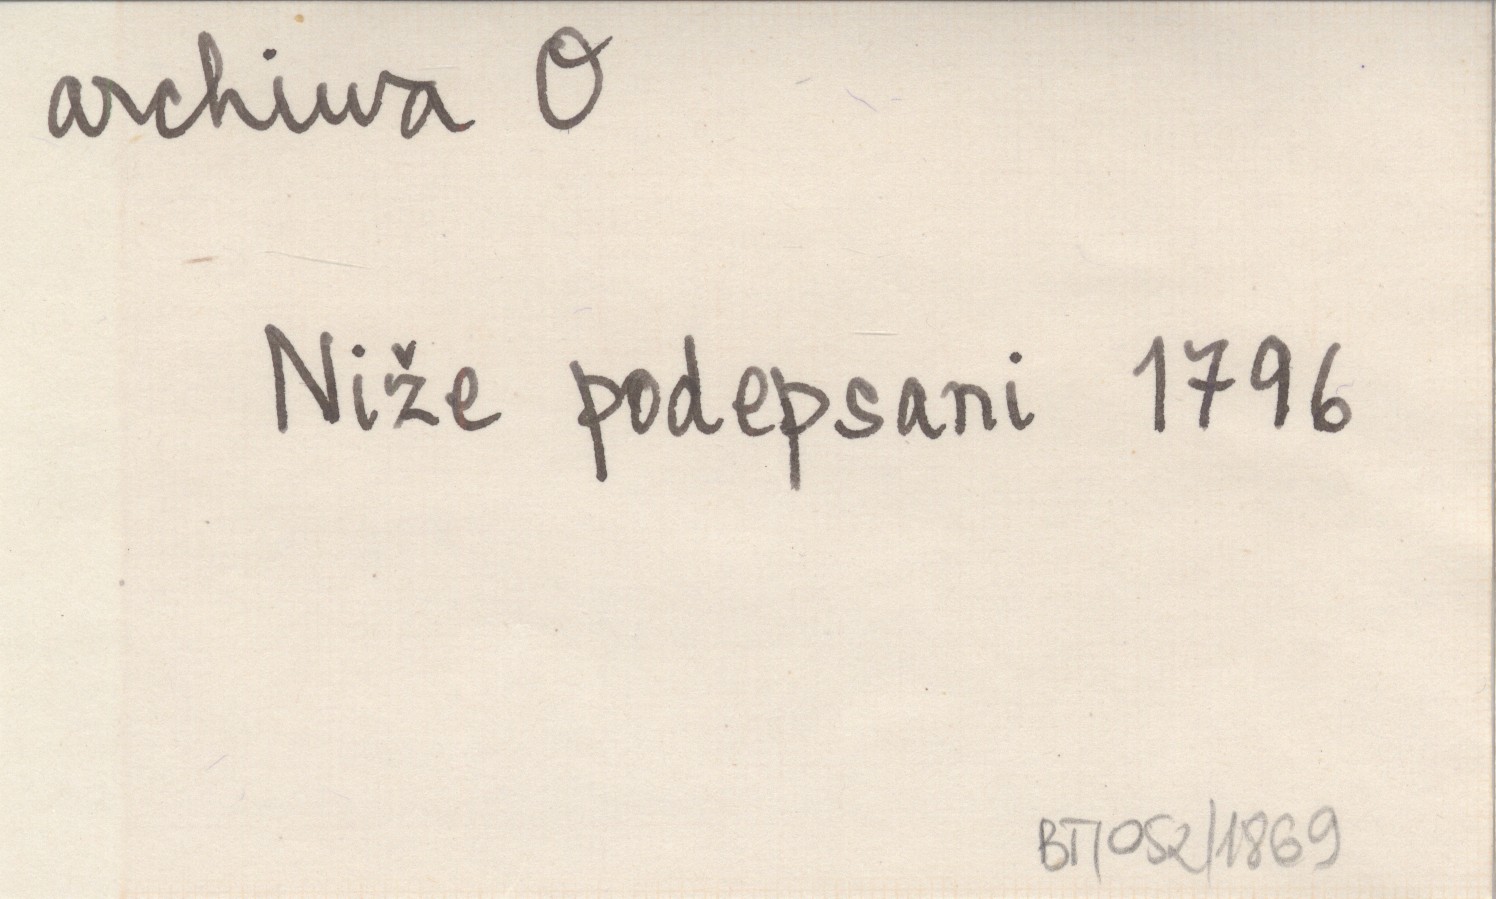 archiwa O
Niže podepsani 1796
BT/OS2/1869